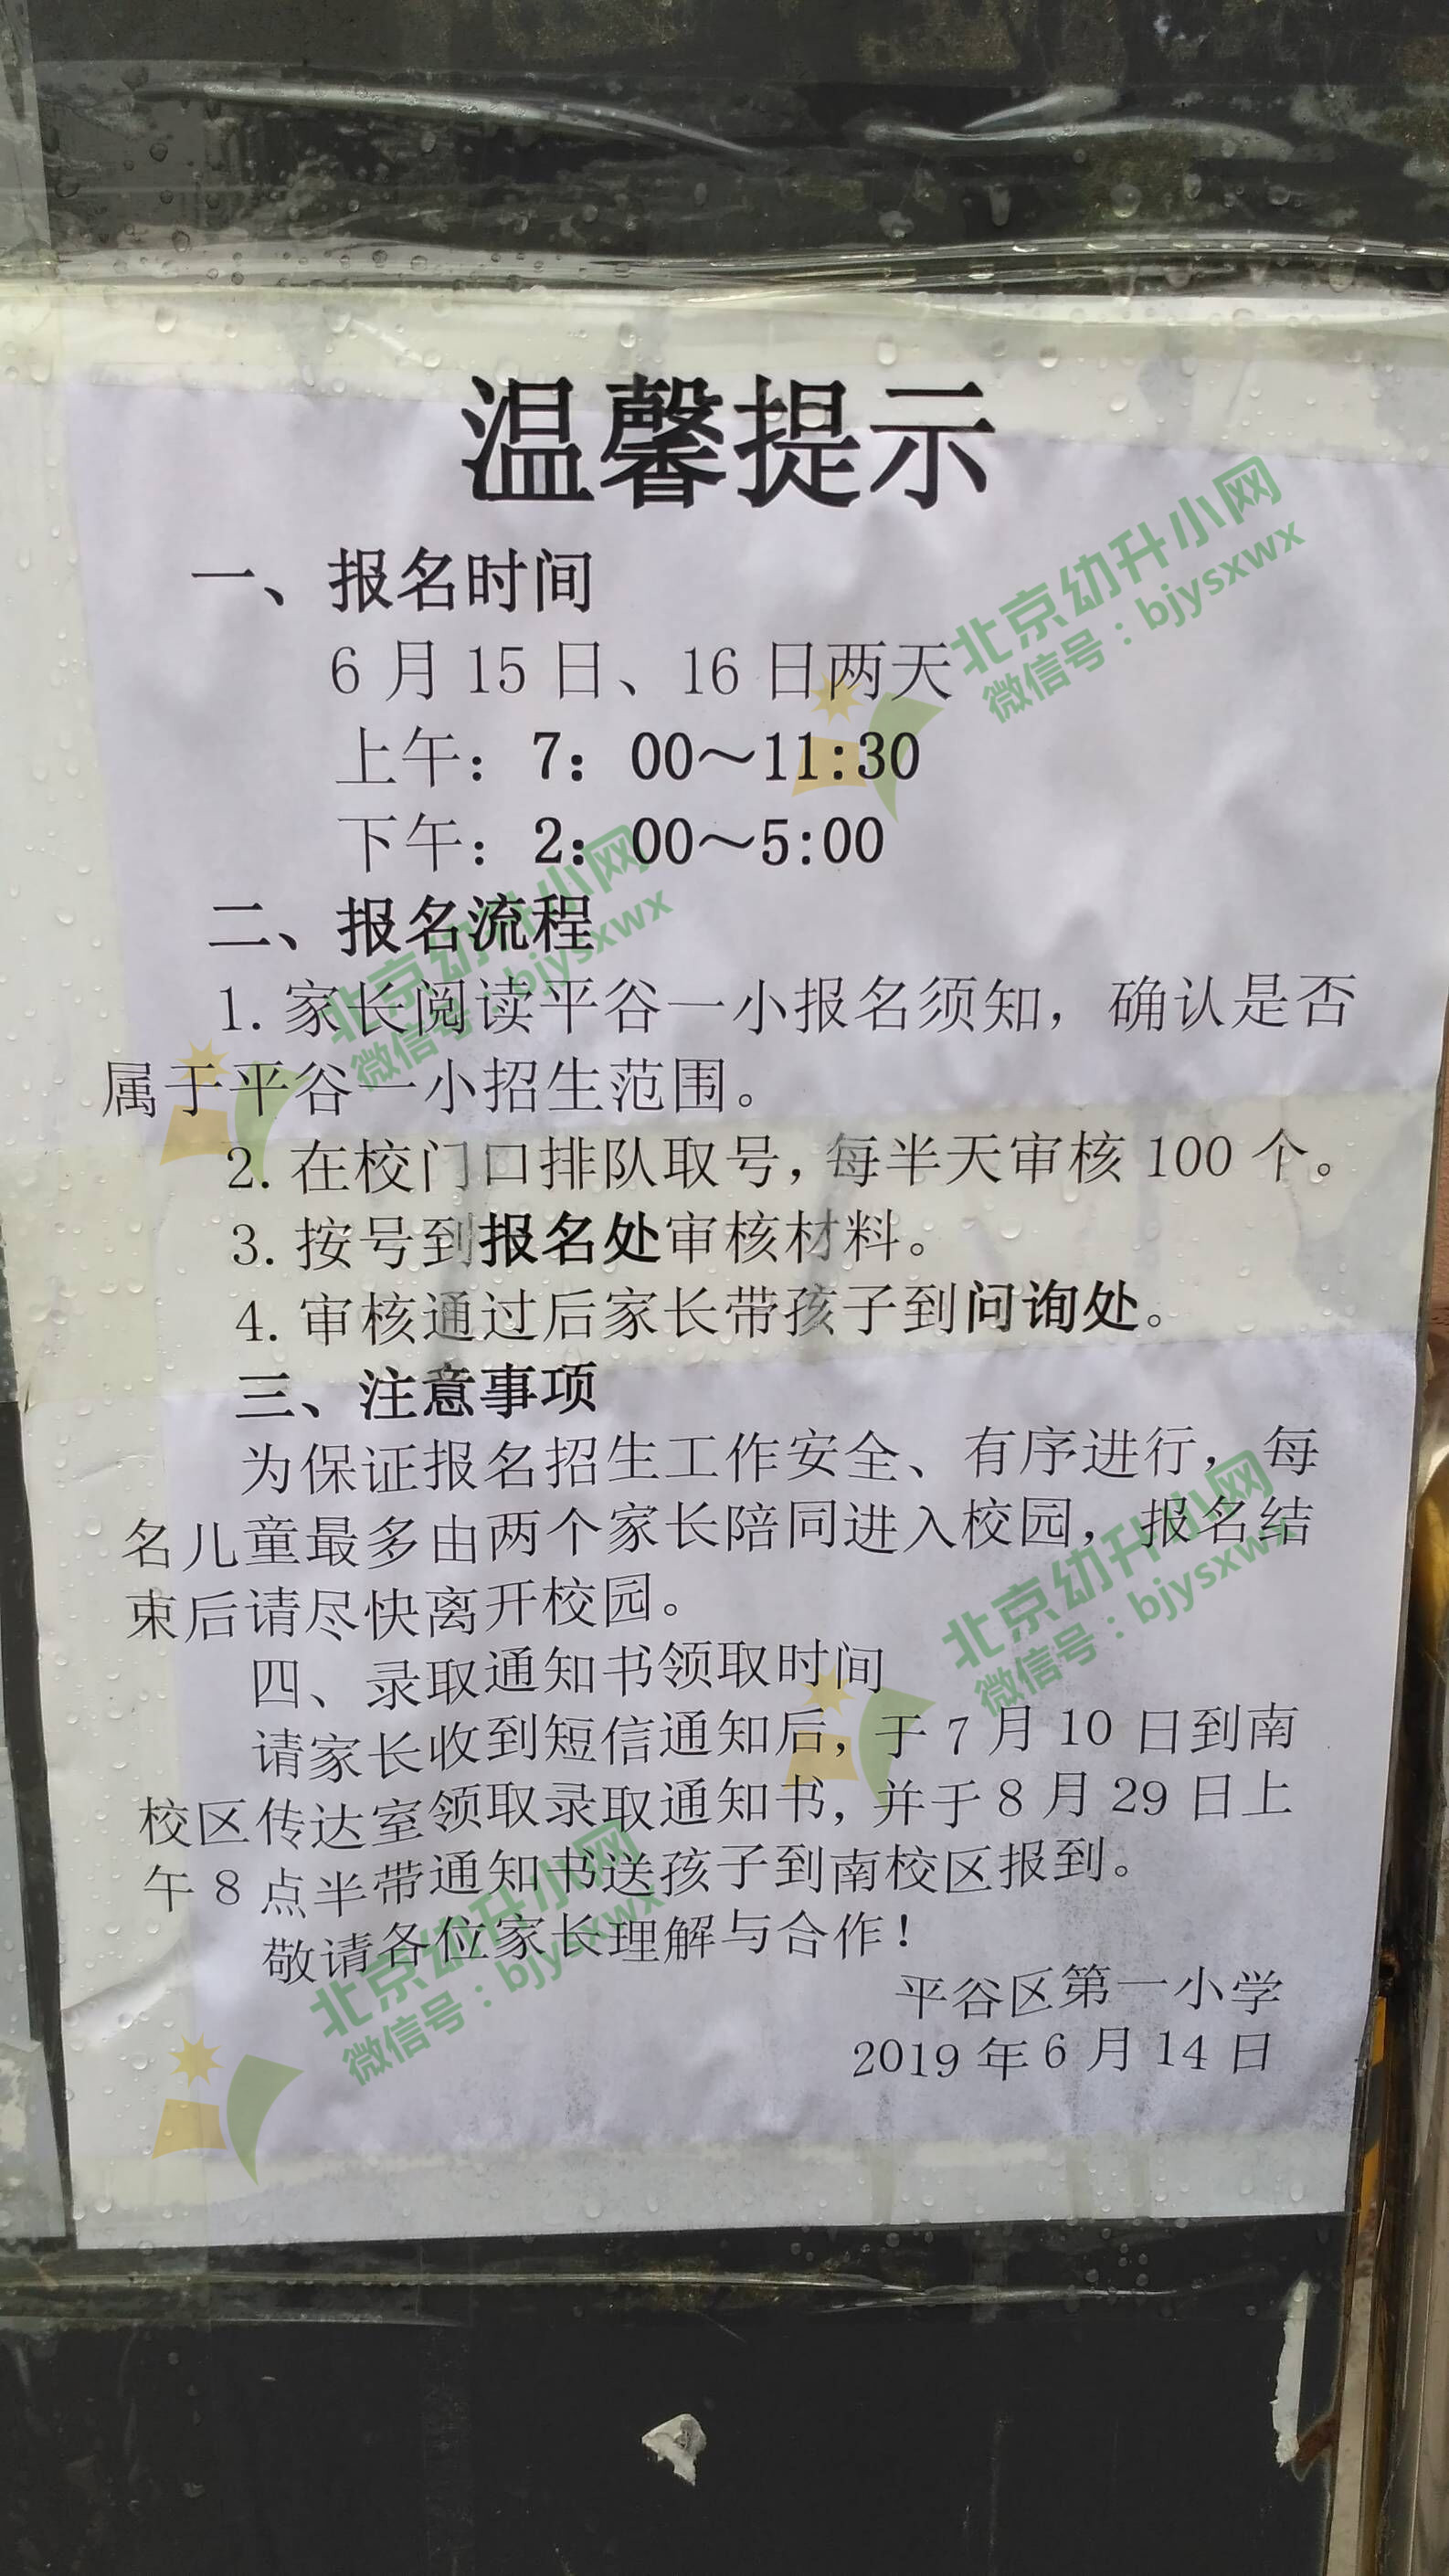 温馨提示
一、报名时间
6月15日、16日两天
上午：7：00～11:30
下午：2：00～5:00
二、报名流程
1. 家长阅读平谷一小报名须知，确认是否
属于平谷一小招生范围。
2. 在校门口排队取号，每半天审核100个。
3. 按号到报名处审核材料。
4. 审核通过后家长带孩子到问询处。
三、注意事项
为保证报名招生工作安全、有序进行，每
名儿童最多由两个家长陪同进入校园，报名结
束后请尽快离开校园。
四、录取通知书领取时间
请家长收到短信通知后，于7月10日到南
校区传达室领取录取通知书，并于8月29日上
午8点半带通知书送孩子到南校区报到。
敬请各位家长理解与合作！
平谷区第一小学
2019年6月14日
北京幼升小网
微信号：bjysxwx
北京幼升小网
微信号：bjysxwx
北京幼升小网
微信号：bjysxwx
北京幼升小网
微信号：bjysxwx